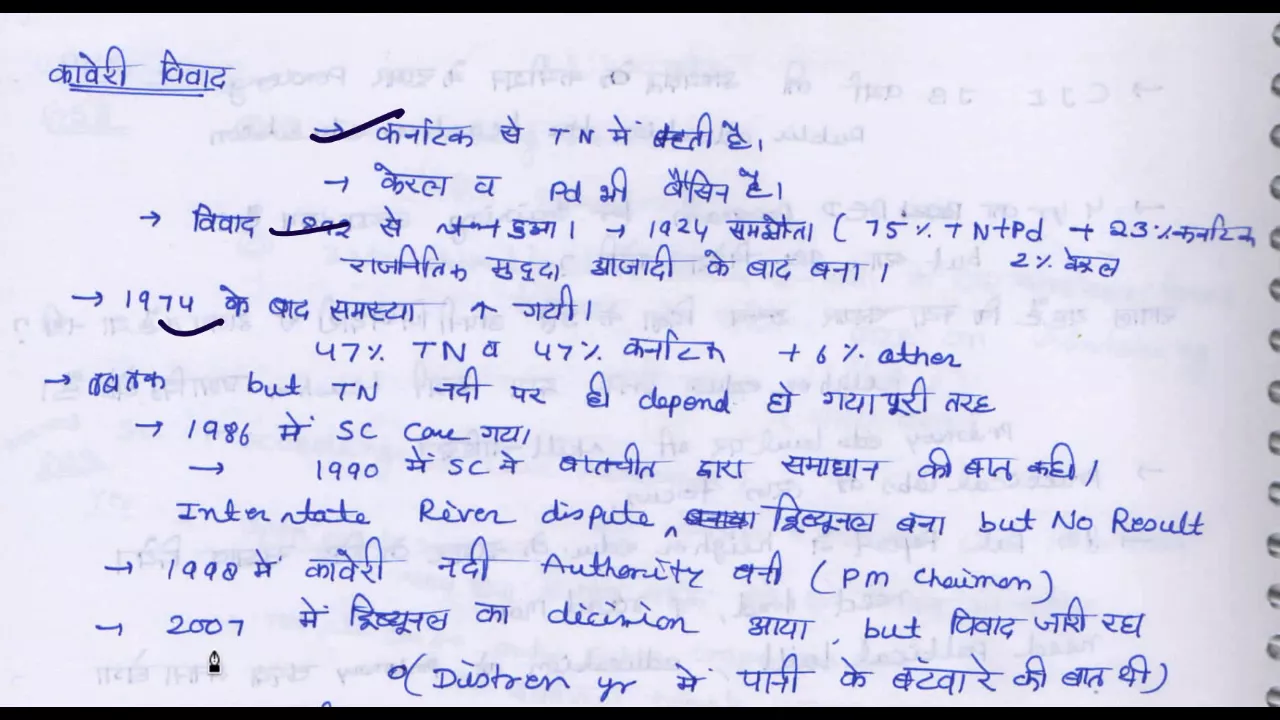 कावेरी विवाद
→ कर्नाटक से TN में बहती है।
→ केरल व Pd भी बैसिन है।
→ विवाद 1892 से शुरू हुआ। → 1924 समझौता ( 75% TN+Pd + 23% कर्नाटक
2% केरल
राजनितिक मुद्दा आजादी के बाद बना ।
→ 1974 के बाद समस्या ↑ गयी
47% TN व 47% कर्नाटक + 6% other
→ तबतक but TN नदी पर ही depend हो गया पूरी तरह
→ 1986 में SC Case गया।
→ 1990 में SC ने बातचीत द्वारा समाधान की बात कही।
Inter state River dispute ट्रिब्यूनल बना but No Result
→ 1998 में कावेरी नदी Authority बनी ( PM Chaiman )
→ 2007 में ट्रिब्यूनल का dicision आया, but विवाद जारी रहा
( Distress yr में पानी के बंटवारे की बात थी )